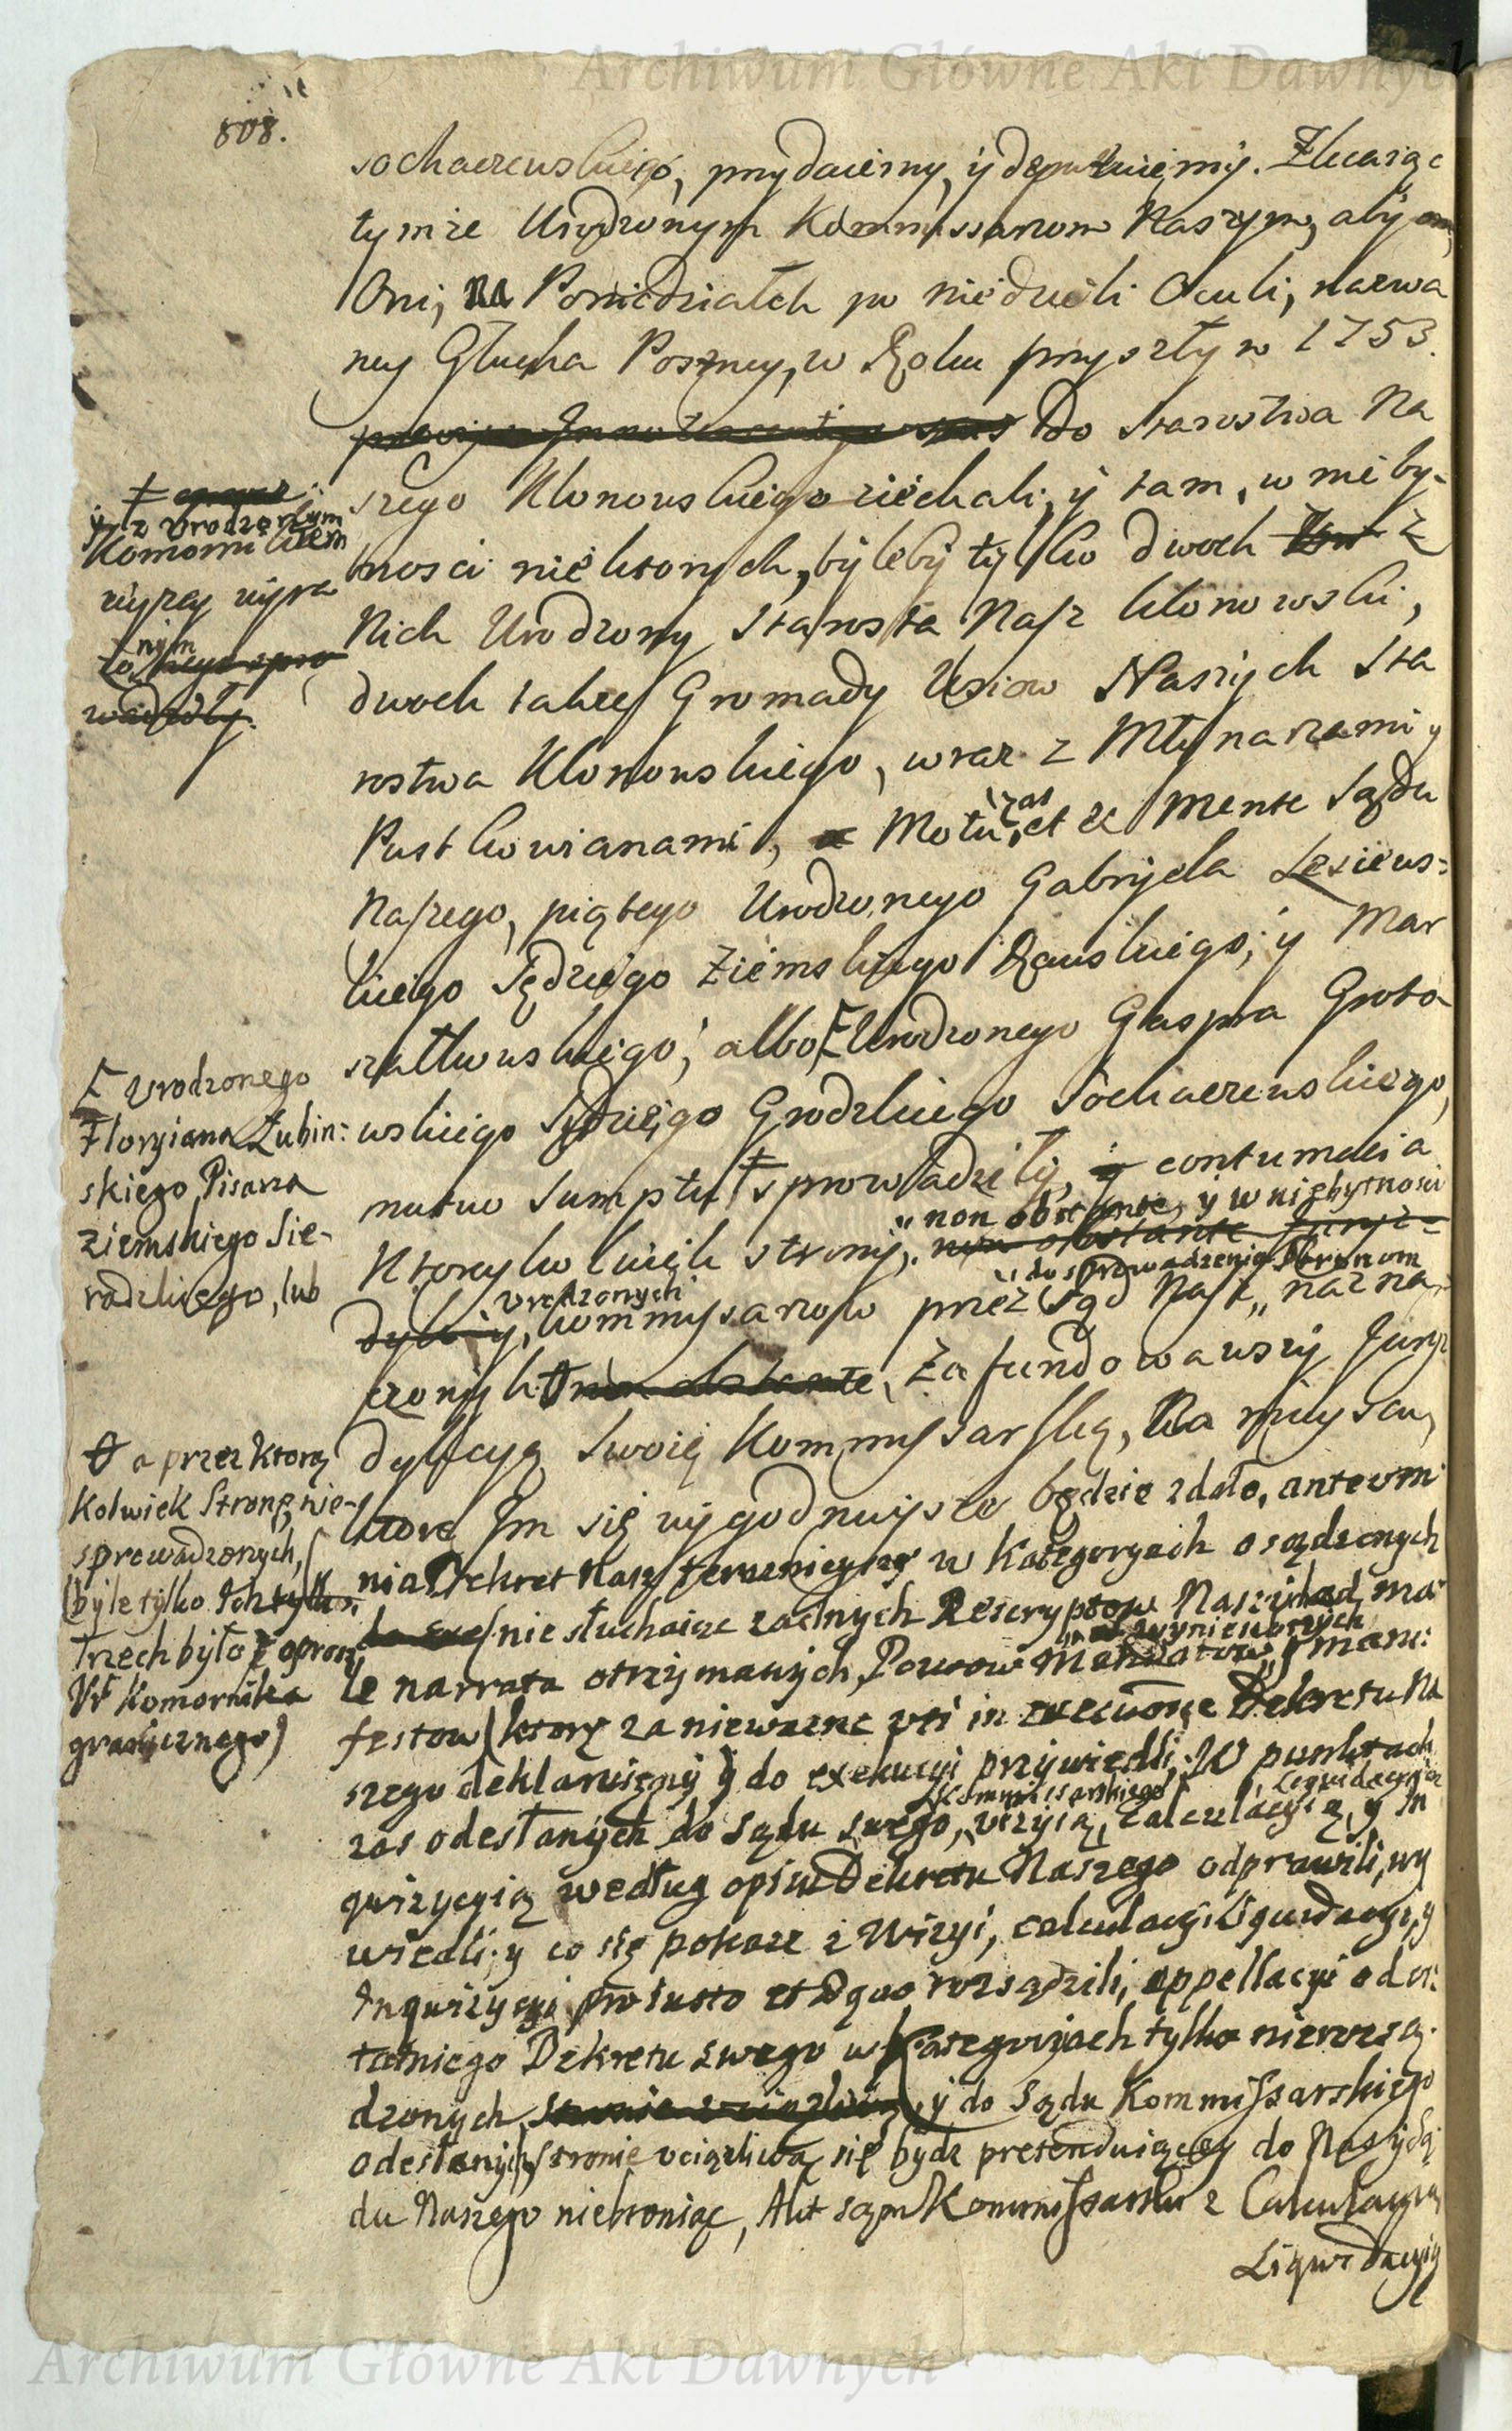 Archiwum Główne Akt Dawnych
808.
sochaczewskiego, przydaiemy, y deputuiemy. Zlecaiąc
tymże Urodzonym Kommissarzom Naszym, aby
Oni, na Poniedziałek po niedzieli Oculi, nazwa
ney Głucha Postney, w Roku przyszłym 1753.
Do Starostwa Na
szego Klonowskiego ziechali, y tam, w nieby-
tności niektorych, byleby tylko dwoch z
Nich Urodzony Starosta Nasz Klonowski,
dwoch także Gromady Wsiow Naszych Sta
rostwa Klonowskiego, wraz z Młynarzami y
Pustkowianami, Motu zas et ex Mente Sądu
Naszego, piątego Urodzonego Gabryela Lesiews=
kiego Sędziego Ziemskiego Rawskiego, y Mar
szałkowskiego, albo Urodzonego Gaspra Groto
wskiego Sędziego Grodzkiego Sochaczewskiego,
mutuo Sumptu sprowadziły, contumacia
non obstante, y w niebytnosci
Ktoreykolwiek strony, non obstante Juryz=
do sprowadzenia Stronom
Urodzonych
dykcy, Kommyssarzow przez Sąd Nasz nazna
czonych non obstante, Zafundowawszy Juryz
dykcyą Swoię Kommyssarską, Na mieyscu,
ktore Im się wygodnieysze będzie zdało, anteom
nia Dekret Nasz teraznieyszy w Kategoryach osądzonych
nie słuchaiąc zadnych Rescryptow Naszych ad ma
wyniesionych
le narrata otrzymanych, Pozwow Mandatow, y mani:
festow (ktore za niewazne uti in executione Dekretu Na
szego deklaruiemy) do exekucyi przywiedli, W punktach
Kommissarskiego Liquidacyią
zas odesłanych do Sądu swego, wizyią, Calculacyią, y In
quizycyią według opisu Dekretu Naszego odprawili, wy
wiedli, y co się pokaze z Wizyi, calculacyi Liquidacyi, y
Inquizycyi pro iusto et Æquo rozsądzili, appellacyi od os:
tatniego Dekretu swego w Kategoryach tylko nierozsą-
dzonych, y do Sądu Kommissarskiego
odesłanych, stronie uciązliwą się bydz pretenduiącey do Nas y Są
du Naszego niebroniąc, Akt Kommissarski z Calculacyią
Liquidacyią
y z Urodzonym
Komornikiem
wyzey wyra
żonym
Urodzonego
Floryiana Zubin:
skiego, Pisarza
ziemskiego Sie-
radzkiego, lub
a przez ktorą
Kolwiek Stronę, nie-
sprowadzonych,
(byle tylko Ich tylko
Trzech było oprocz
Ur Komornika
granicznego)
Archiwum Główne Akt Dawnych